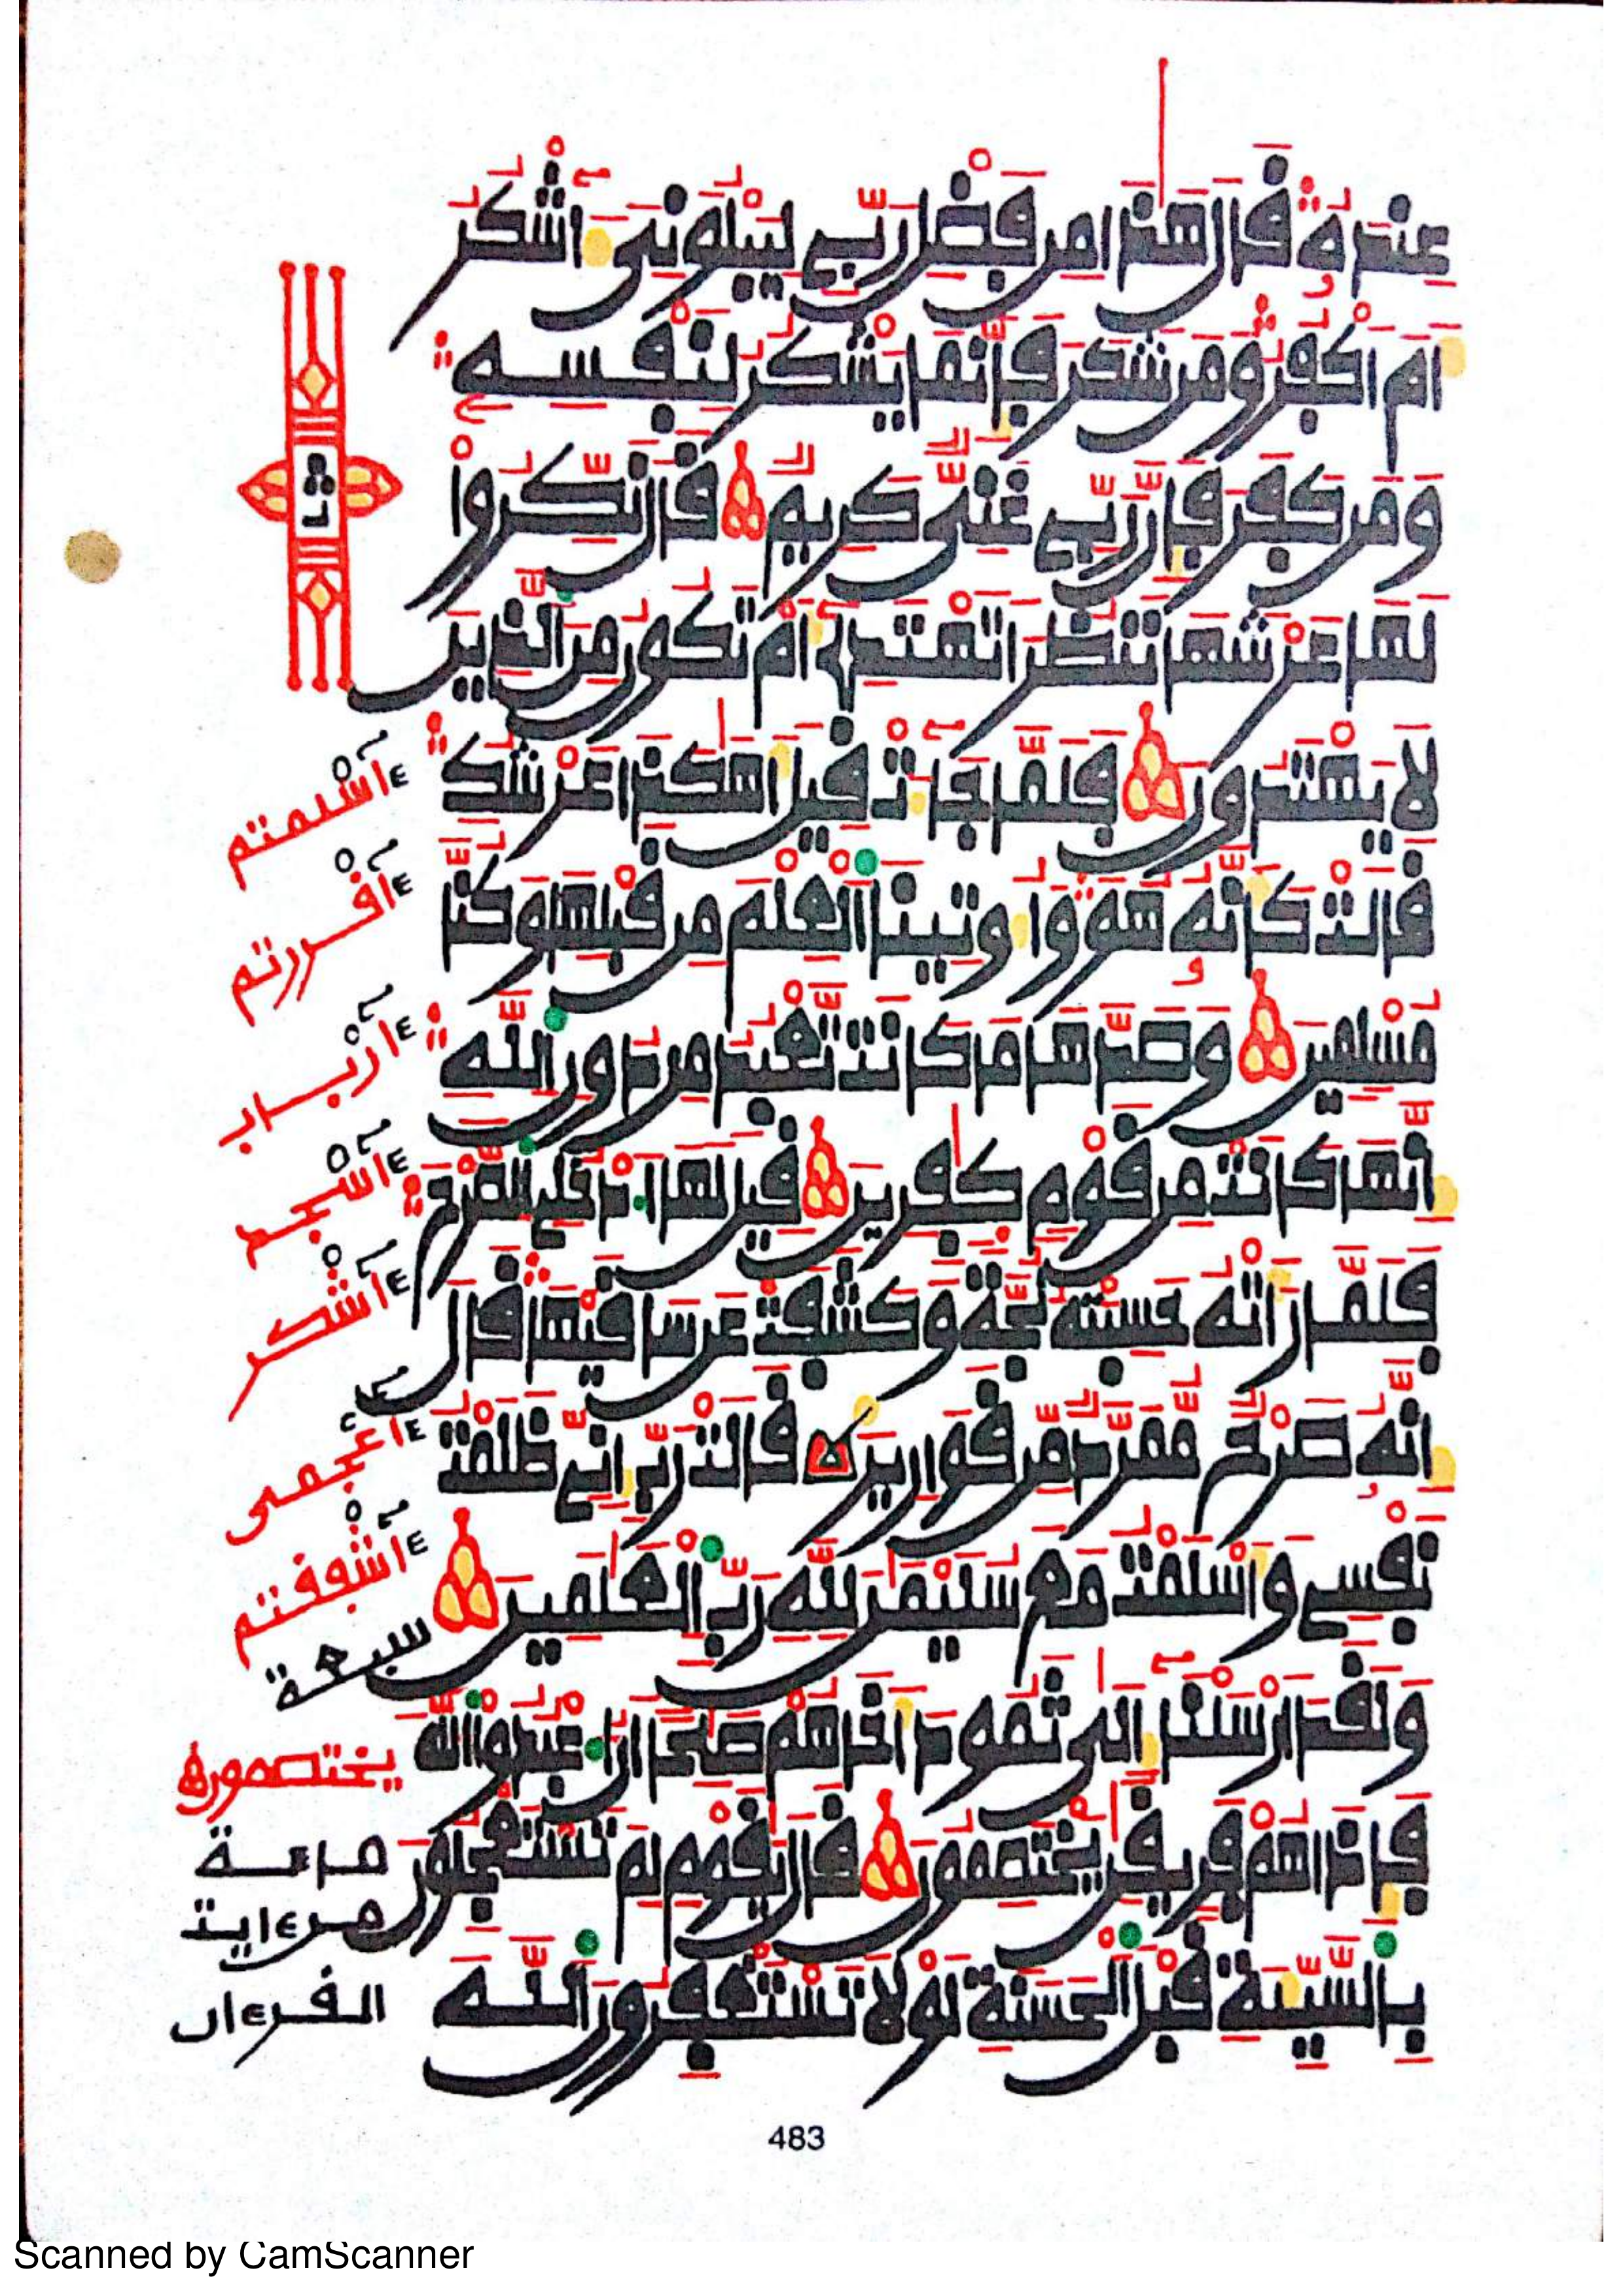 عِندَهُۥ قَالَ هَٰذَا مِن فَضْلِ رَبِّے لِيَبْلُوَنِىَ ءَآشْكُرُ
أَمَ اَكْفُرُ وَمَن شَكَرَ فَإِنَّمَا يَشْكُرُ لِنَفْسِهِۦ
وَمَن كَفَرَ فَإِنَّ رَبِّے غَنِىٌّ كَرِيمٌ قَالَ نَكِّرُواْ
لَهَا عَرْشَهَا نَنظُرَ اَتَهْتَدِےٓ أَمْ تَكُونُ مِنَ اَلذِينَ
لَا يَهْتَدُونَ فَلَمَّا جَآءَتْ قِيلَ أَهَٰكَذَا عَرْشُكِ
قَالَتْ كَأَنَّهُۥ هُوَ وَأُوتِينَا اَلْعِلْمَ مِن قَبْلِهَا وَكُنَّا
مُسْلِمِينَ وَصَدَّهَا مَا كَانَت تَّعْبُدُ مِن دُونِ اِللَّهِ
إِنَّهَا كَانَتْ مِن قَوْمٍ كَٰفِرِينَ قِيلَ لَهَا اَدْخُلِے اِلصَّرْحَ
فَلَمَّا رَأَتْهُ حَسِبَتْهُ لُجَّةً وَكَشَفَتْ عَن سَاقَيْهَا قَالَ
إِنَّهُۥ صَرْحٌ مُّمَرَّدٌ مِّن قَوَارِيرَ قَالَتْ رَبِّ إِنِّے ظَلَمْتُ
نَفْسِے وَأَسْلَمْتُ مَعَ سُلَيْمَٰنَ لِلَّهِ رَبِّ اِلْعَٰلَمِينَ
وَلَقَدَ اَرْسَلْنَا إِلَىٰ ثَمُودَ أَخَاهُمْ صَٰلِحًا اَنُ اُعْبُدُواْ اُللَّهَ
فَإِذَا هُمْ فَرِيقَٰنِ يَخْتَصِمُونَ قَالَ يَٰقَوْمِ لِمَ تَسْتَعْجِلُونَ
بِالسَّيِّئَةِ قَبْلَ اَلْحَسَنَةِ لَوْلَا تَسْتَغْفِرُونَ اَللَّهَ
ثُ
ءَاسْلمتم
ءَاقْررتم
ءَارْباب
ءَاسْجد
ءَاشْكر
ءَاعْجمى
ءَاشْفقتم
سبعة
يختصمون
من ءايت
القرءان
483
Scanned by CamScanner